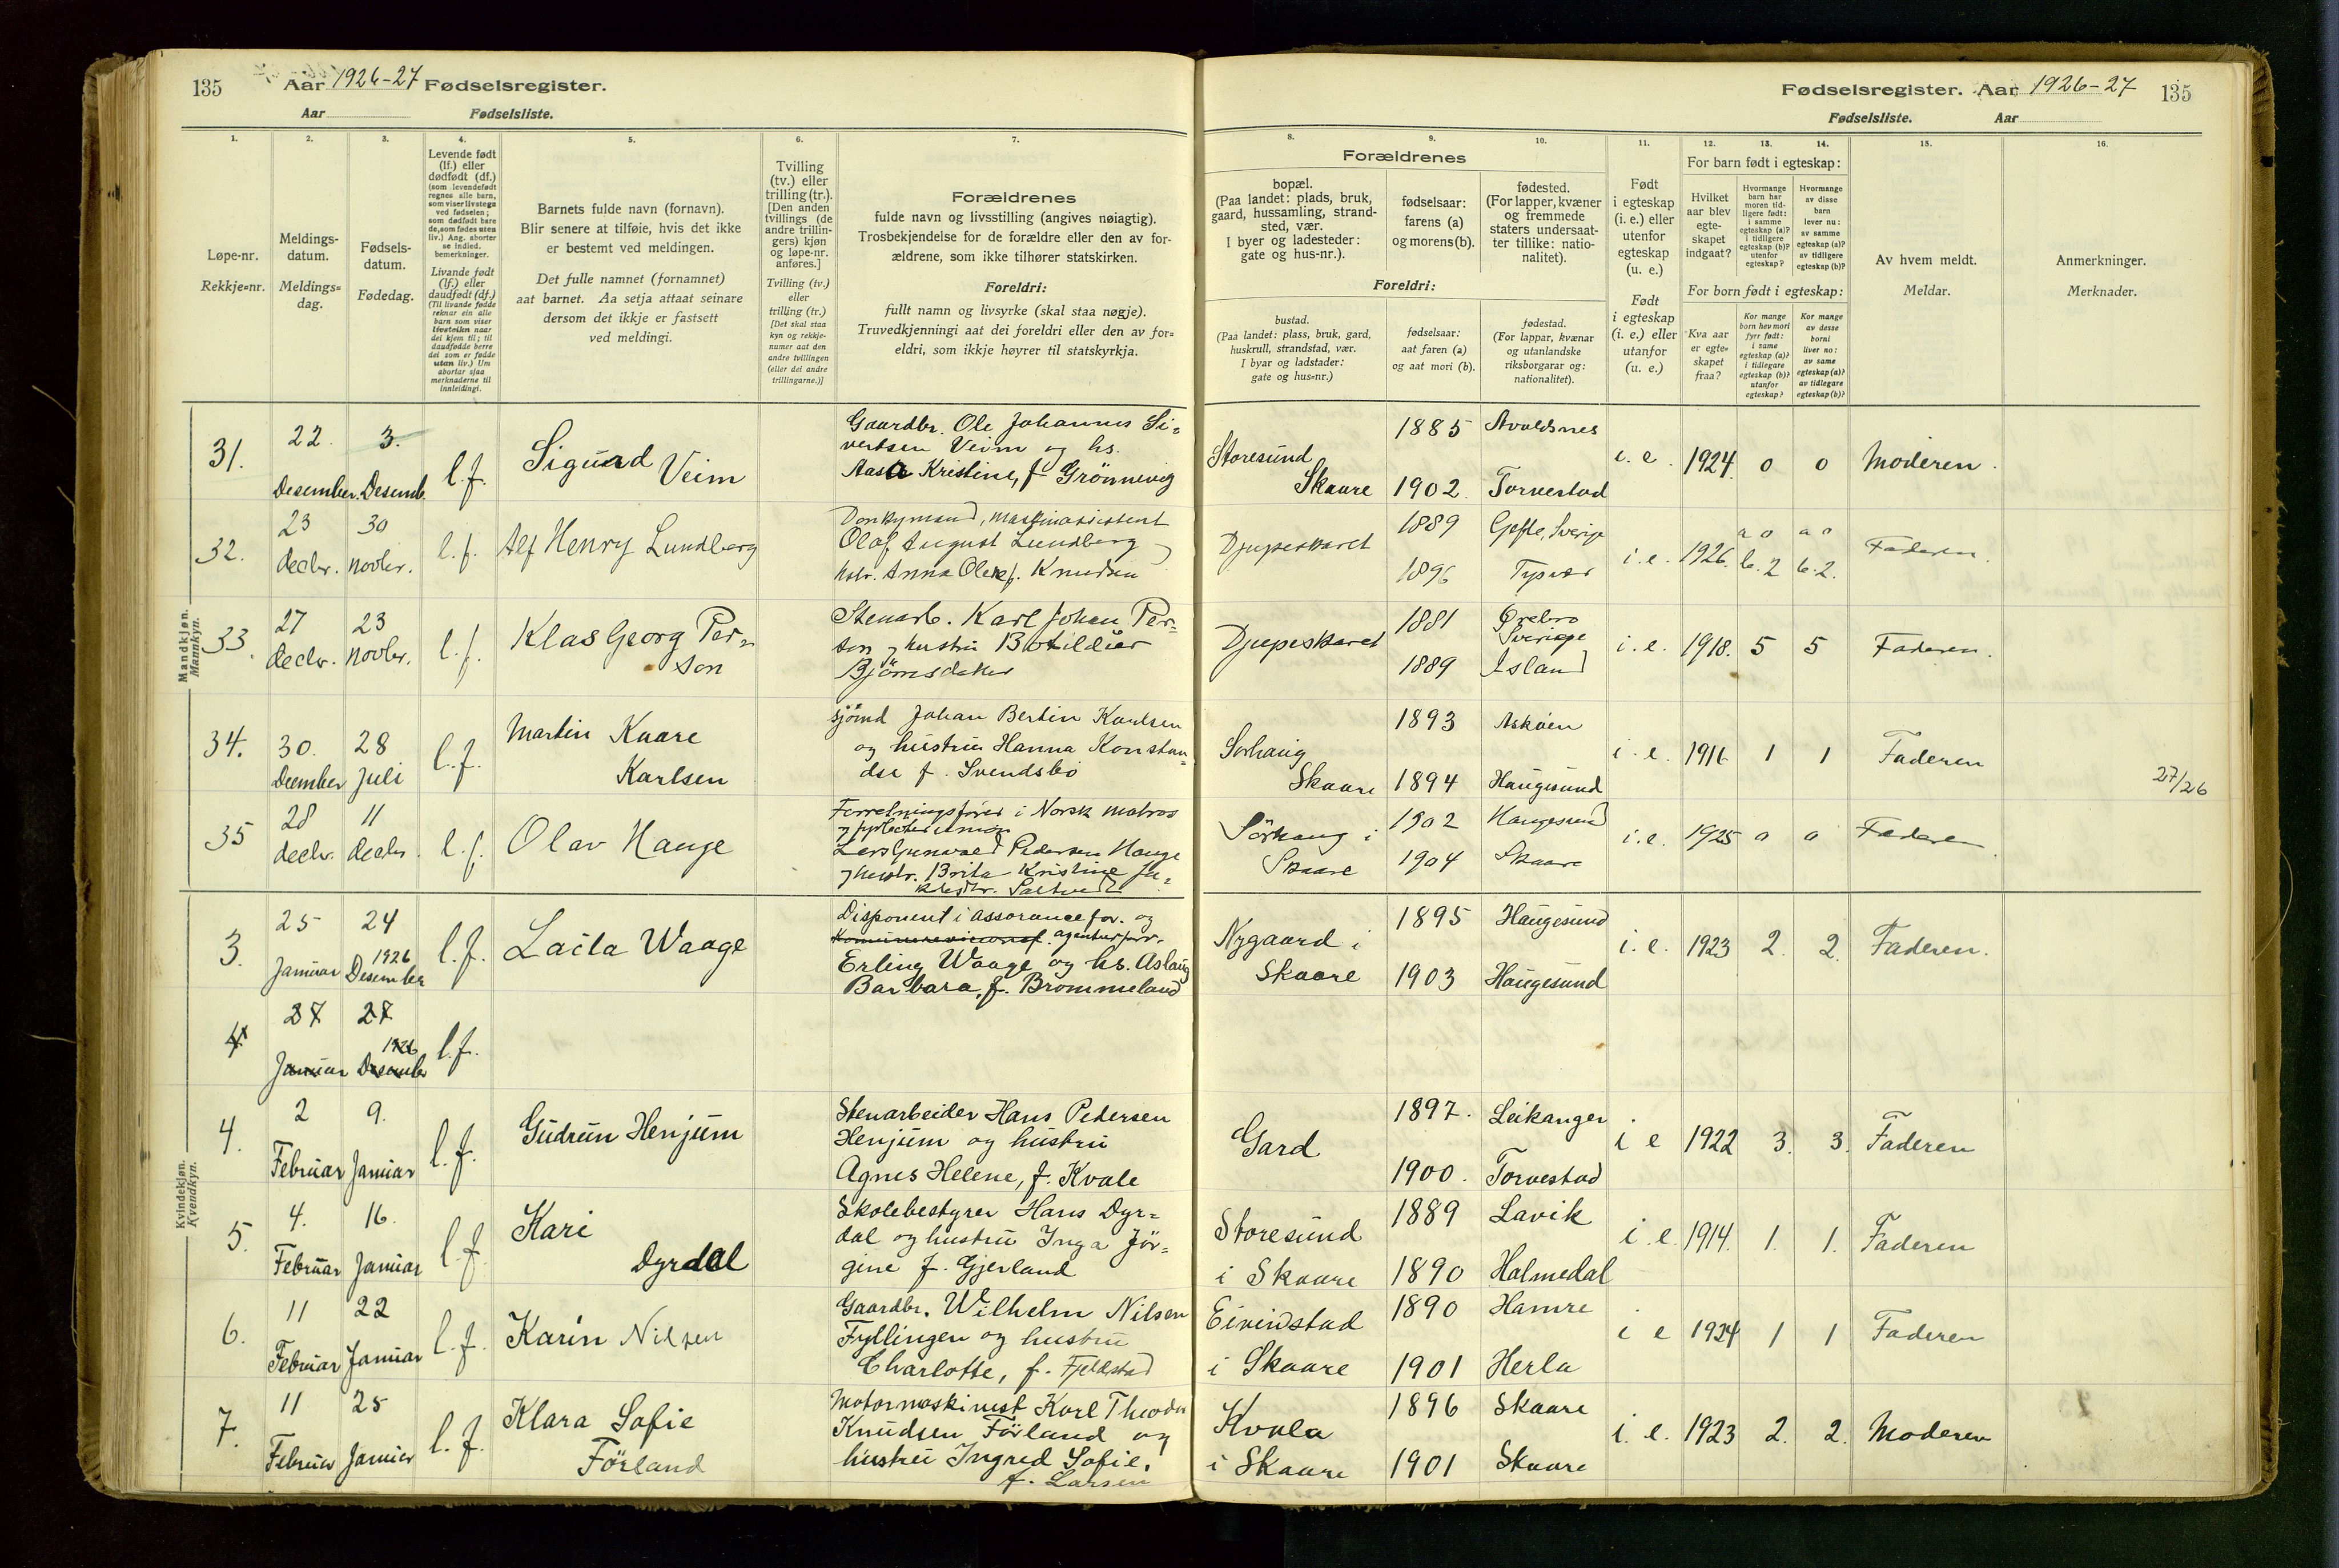 135 Aar 1926-27 Fødselsregister.
Aar Fødselsliste.
Fødselsregister. Aar 1926-27 135
Fødselsliste. Aar
1. 2. 3. 4. 5. 6. 7.
Løpe-nr.
Rekkje=nr.
Meldings-
datum.
Meldings=
dag.
Fødsels-
datum.
Fødedag.
Levende født
(lf.) eller
dødfødt (df.)
(som levendefødt
regnes alle barn,
som viser livstegn
ved fødselen;
som dødfødt bare
de, som fødes uten
liv.) Ang. aborter
se indled.
bemerkninger.
Livande født
(lf.) eller
daudfødt (df.)
(Til livande fødde
reknar ein alle
born som viser
livsteikn naar
dei kjem til; til
daudfødde berre
dei som er fødde
utan liv.) Um
abortar sjaa
merknaderne til
innleidingi.
Barnets fulde navn (fornavn).
Blir senere at tilføie, hvis det ikke
er bestemt ved meldingen.
Det fulle namnet (fornamnet)
aat barnet. Aa setja attaat seinare
dersom det ikkje er fastsett
ved meldingi.
Tvilling
(tv.) eller
trilling (tr.).
[Den anden
tvillings (de
andre trillin-
gers) kjøn
og løpe-nr.
anføres.]
Tvilling (tv.)
eller
trilling (tr.)
[Det skal staa
kyn og rekkje-
numer aat den
andre tvillingen
(eller dei andre
trillingarne.)]
Forældrenes
fulde navn og livsstilling (angives nøiagtig).
Trosbekjendelse for de forældre eller den av for-
ældrene, som ikke tilhører statskirken.
Foreldri:
fullt namn og livsyrke (skal staa nøgje).
Truvedkjenningi aat dei foreldri eller den av for=
eldri, som ikkje høyrer til statskyrkja.
8. 9. 10. 11. 12. 13. 14. 15. 16.
Forældrenes
bopæl.
(Paa landet: plads, bruk,
gaard, hussamling, strand-
sted, vær.
I byer og ladesteder:
gate og hus-nr.).
fødselsaar:
farens (a)
og morens (b).
fødested.
(For lapper, kvæner
og fremmede
staters undersaat-
ter tillike: natio-
nalitet).
Foreldri:
bustad.
(Paa landet: plass, bruk, gard,
huskrull, strandstad, vær.
I byar og ladstader:
gate og hus=nr.)
fødselsaar:
aat faren (a)
og aat mori (b).
fødestad.
(For lappar, kvænar
og utanlandske
riksborgarar og:
nationalitet).
Født
i egteskap
(i. e.) eller
utenfor
egteskap
(u. e.)
Født
i egteskap
(i. e.) eller
utanfor
(u. e.)
For barn født i egteskap:
Hvilket
aar blev
egte-
skapet
indgaat?
Hvormange
barn har
moren tid-
ligere født:
i samme
egteskap (a)?
i tidligere
egteskap (b)?
utenfor
egteskap?
Hvormange
av disse
barn
lever nu:
av samme
egteskap (a)?
av tidligere
egteskap (b)?
For born født i egteskap:
Kva aar
er egte=
skapet
fraa?
Kor mange
born hev mori
fyrr født:
i same
egteskap (a)?
i tidlegare
egteskap (b)?
utanfor
egteskap?
Kor mange
av desse
borni
liver no:
av same
egteskap (a)?
av tidlegare
egteskap (b)?
Av hvem meldt.
Meldar.
Anmerkninger.
Merknader.
Mandkjøn.
Mannkyn.
31. 22. Desember. 3. Desemb. l.f. Sigurd Veim
Gaardbr. Ole Johannes Si=
vertsen Veim og hs.
Aasa Kristine, f. Grönnevig
Storesund Skaare 1885 Avaldsnes 1902 Torvestad i. e. 1924. 0 0 Moderen.
32. 23 decbr. 30 novbr. l.f. Alf Henry Lundberg
Donkymand, maskinassistent
Olaf August Lundberg
hstr. Anna Oline f. Knudsen
Djupeskaret 1889 Gefle, Sverige 1896 Tysvær i.e. 1926. a 0 b. 2 a 0 b. 2. Faderen.
33. 27 decbr. 23 novbr. l.f. Klas Georg Per=
son
Stenarb. Karl Johan Per=
son og hustru Botildur
Björnsdatter
Djupeskaret 1881 Örebro Sverige 1889 Island i.e. 1918. 5 5 Faderen.
34. 30. Desember 28 Juli l.f. Martin Kaare
Karlsen
Sjömd Johan Bertin Karlsen
og hustru Hanna Konstan=
dse f. Svendsbö
Sorhaug Skaare 1893 Asköen 1894 Haugesund i.e. 1916 1 1 Faderen 27/26
35 28 decbr. 11 decbr. l.f. Olav Hauge
Forretningsförer i Norsk matros
og fyrböterunion
Lars Gunvald Pedersen Hauge
og hustr. Brita Kristine
f. Saltvedt
Sörhaug i Skaare 1902 Haugesund 1904 Skaare i.e. 1925 0 0 Faderen.
Kvindekjøn.
Kvendkyn.
3. 25 Januar 24 1926 Desember l.f. Laila Waage
Disponent i assurancefor. og
agenturforr.
Erling Waage og hs. Aslaug
Barbara, f. Brommeland
Nygaard i Skaare 1895 Haugesund 1903 Haugesund i.e. 1923 2. 2. Faderen.
4 27 Januar 27 1926 Desember l.f.
4. 2 Februar 9. Januar l.f. Gudrun Henjum
Stenarbeider Hans Pedersen
Henjum og hustru
Agnes Helene, f. Kvale
Gard 1897. Leikanger 1900. Torvestad i e 1922 3. 3. Faderen
5. 4. Februar 16. Januar l.f. Kari
Dyrdal
Skolebestyrer Hans Dyr=
dal og hustru Inga Jör=
gine f. Gjerland
Storesund i Skaare 1889 Lavik 1890 Holmedal i. e. 1914. 1. 1. Faderen
6. 11 Februar 22 Januar l.f. Karin Nilsen
Gaardbr. Wilhelm Nilsen
Fyllingen og hustru
Charlotte, f. Fjeldstad
Eivindstad i Skaare 1890 Hamre 1901 Herla i e 1924 1 1 Faderen
7. 11 Februar 25 Januar l.f. Klara Sofie
Förland
Motormaskinist Karl Theodor
Knudsen Förland og
hustru Ingred Sofie,
f. Larsen
Kvala i Skaare 1896 Skaare 1901 Skaare i. e. 1923 2. 2. Moderen